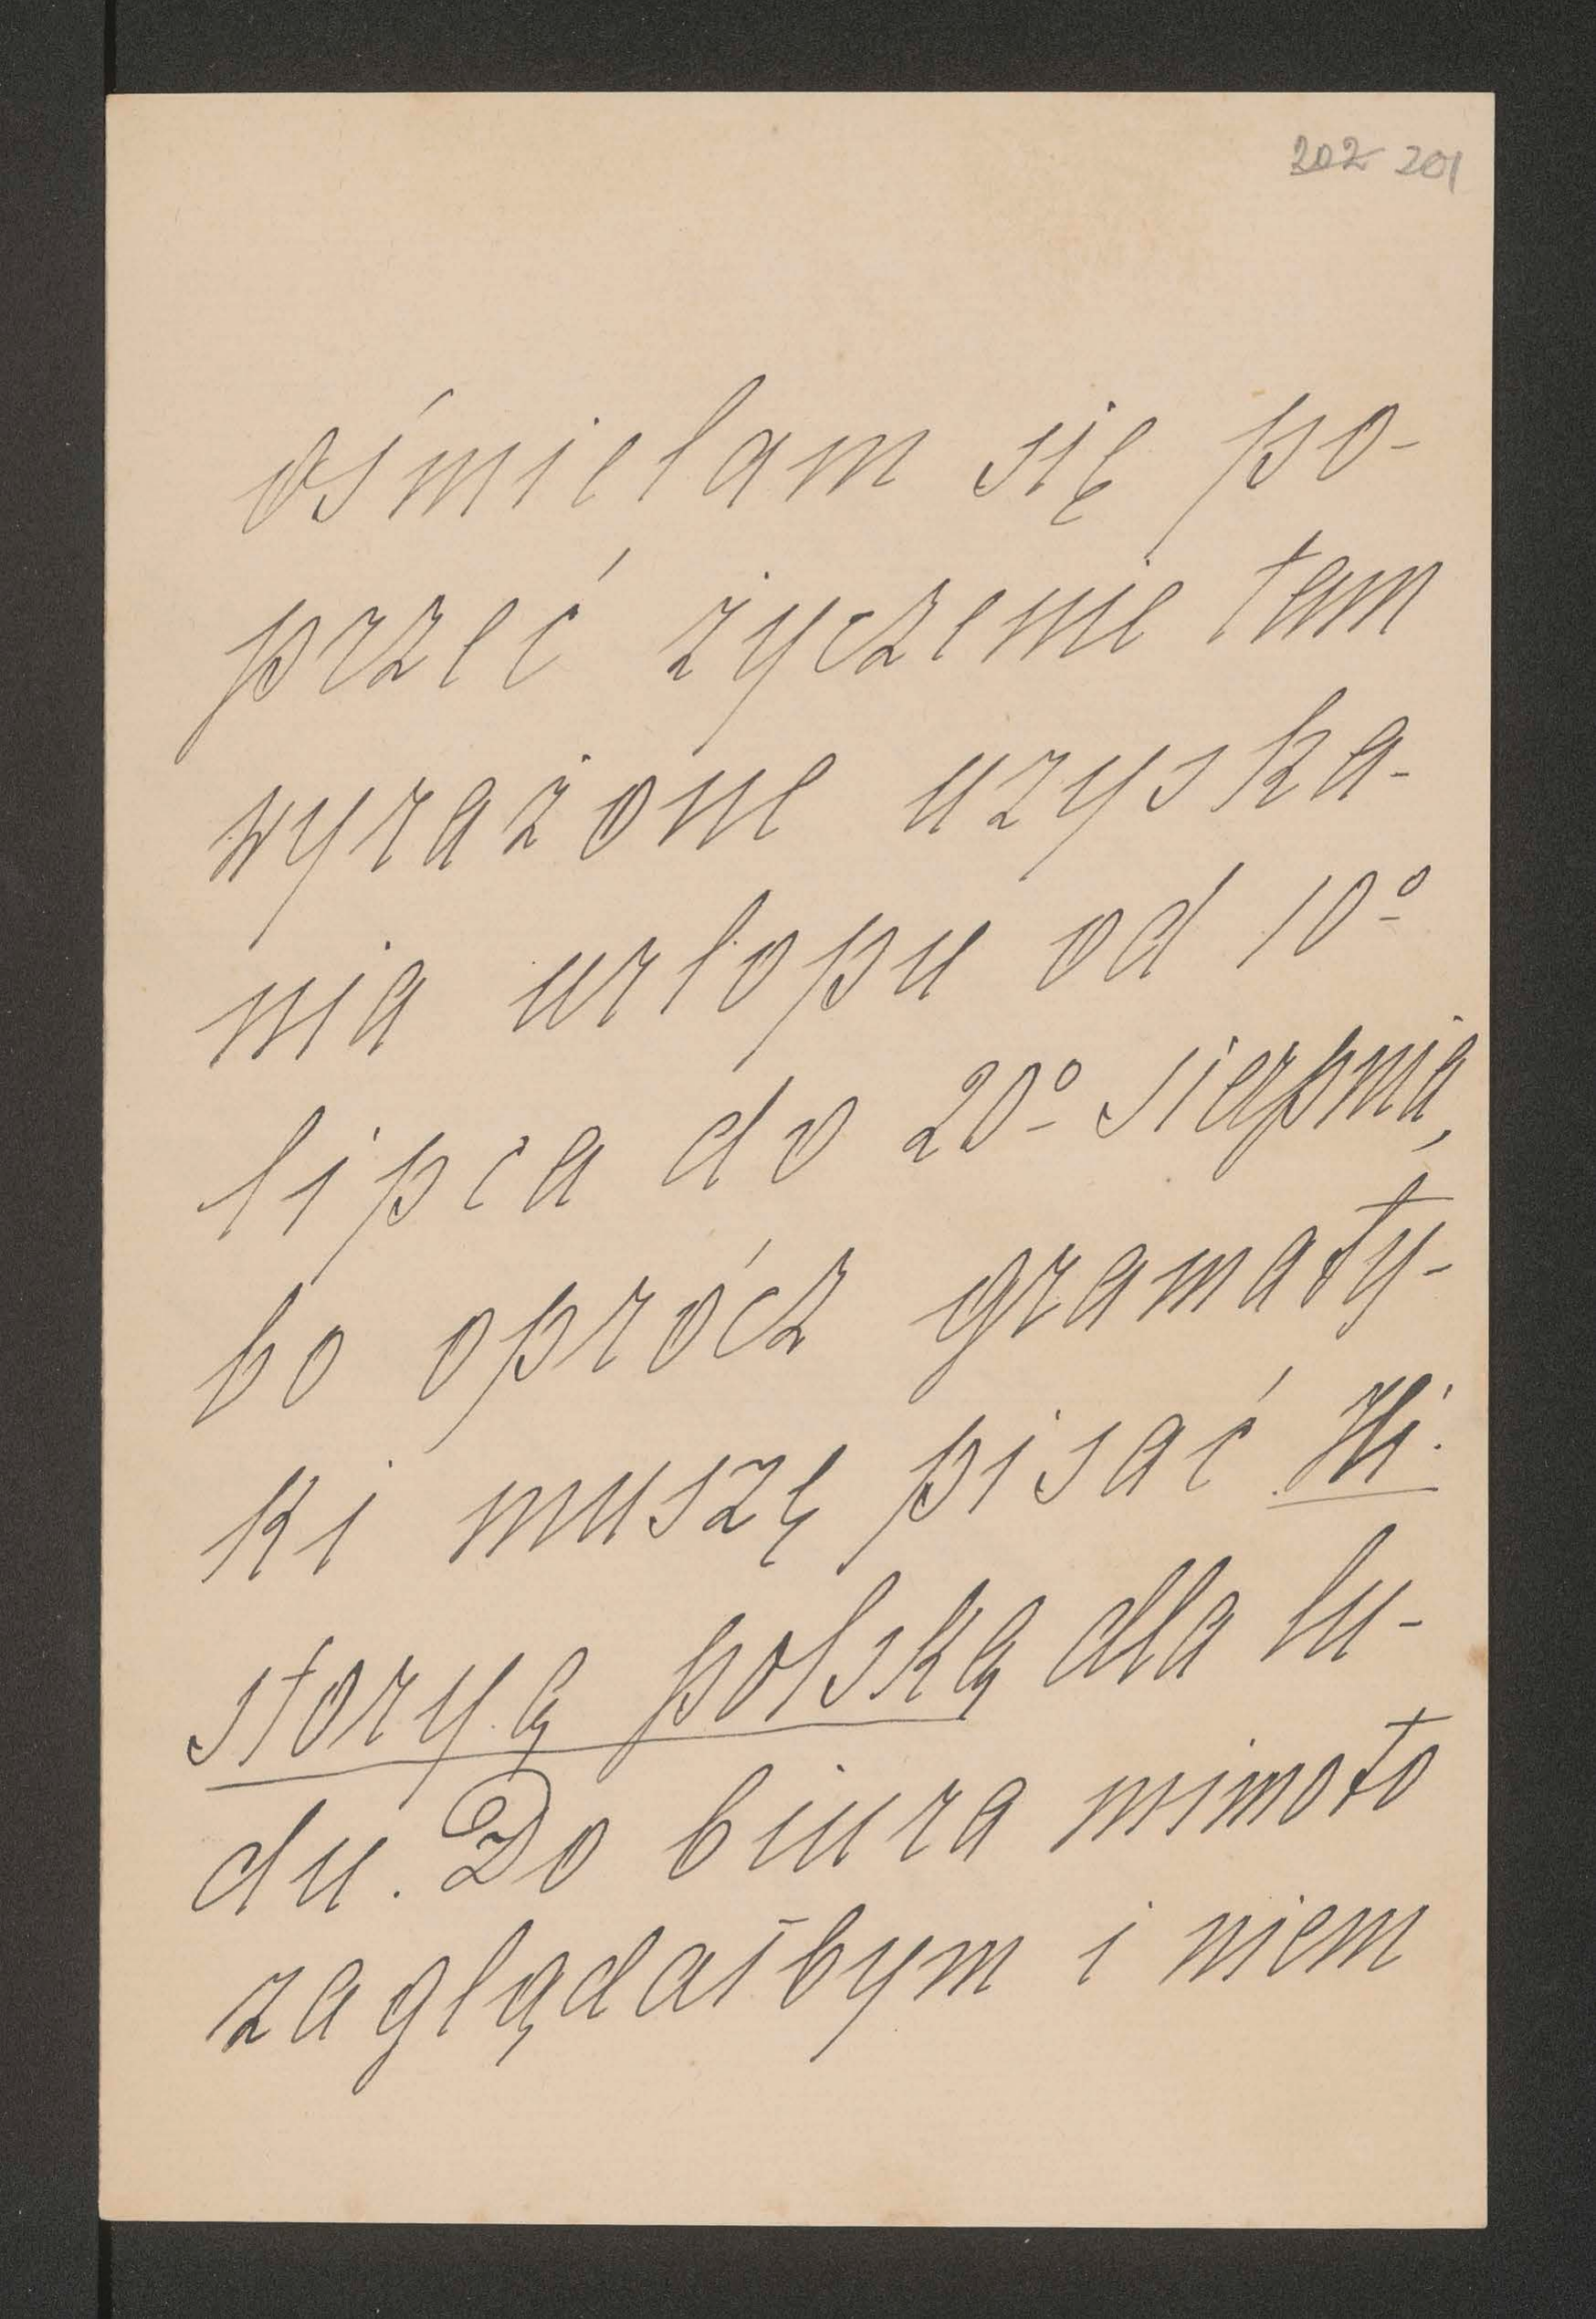 202 201
ośmielam się po-
przeć życzenie tam
wyrażone uzyska-
nia urlopu od 10º
lipca do 20º sierpnia,
bo oprócz gramaty-
ki muszę pisać Hi-
storyą polską dla lu-
du. Do biura mimoto
zaglądałbym i niem